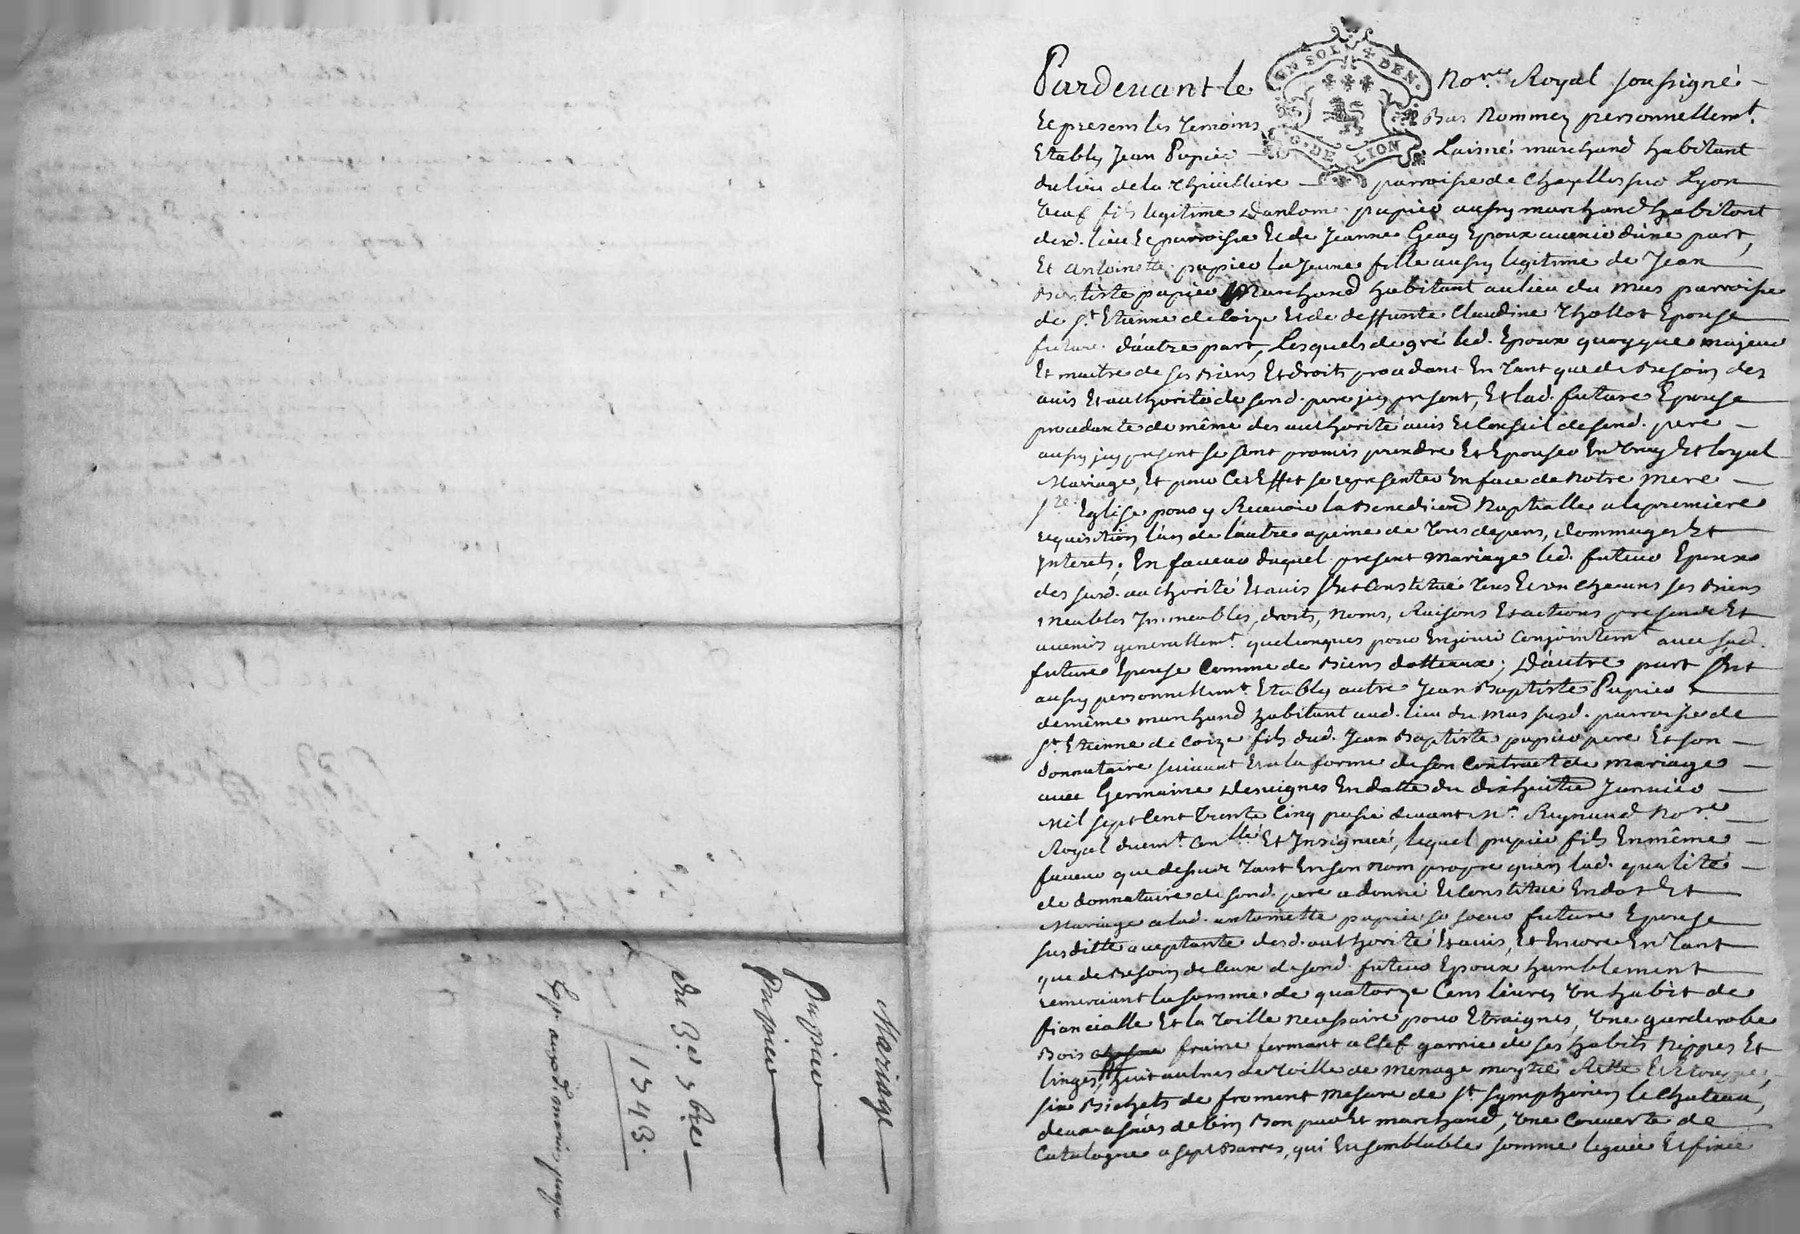 Pardevant le Nore. Royal soussigné
Et presens les temoins Bas Nommez personnellemt.
Etably Jean Papier Laisné marchand habitant
du lieu de la Thuilliere parroisse de Chazelles sur Lyon
veuf fils legitime papier aussy marchand habitant
desd. lieu Et parroisse Et de Jeanne Epoux avenir d'une part,
Et Antoinette papier la Jeune fille aussy legitime de Jean
Baptiste papier Marchand habitant au lieu du Mas parroisse
de St. Etienne de Coize Et de deffunte Claudine Thollot Epouse
future d'autre part, Lesquels de gré led. Epoux quoyque majeur
Et maitre de ses Biens Et droits procedant En tant que de Besoin des
avis Et authorité de sond. pere icy present, Et lad. future Epouse
procedante de même des authorité avis Et Conseil de sond. pere
aussy icy present se sont promis prendre Et Epouser En vray Et loyal
Mariage, Et pour Cet Effet se representer En face de Notre Mere
Ste. Eglise pour y Recevoir la Benediction Nuptialle a la premiere
requisition l'un de l'autre a peine de tous depens, dommages Et
Interets; En faveur duquel present Mariage led. futur Epoux
des susd. authorité Et avis s'est Constitué tous Et un chacuns ses Biens
meubles Immeubles, droits, Noms, Raisons Et actions presents Et
avenir generallemt. quelconques pour En jouir Conjointemt. avec sad.
future Epouse Comme de Biens dotteaux; D'autre part s'est
aussy personnellemt. Etably autre Jean Baptiste Papier
de même marchand habitant aud. lieu du Mas susd. parroisse de
St. Etienne de Coize fils dud. Jean Baptiste papier pere Et son
donnataire suivant Et a la forme de son Contract de Mariage
avec Germaine Desvignes En datte du dixhuitie Janvier
Mil sept Cent trente Cinq passé devant Me. Raynaud Nore.
Royal duemt. Conllé Et Insignué, lequel papier fils En même
faveur que dessus tant En son Nom propre qu'en lad. qualité
de donnataire de sond. pere a donné Et Constitué En dot Et
Mariage a lad. antoinette papier sa soeur future Epouse
susditte aceptante desd. authorité Et avis, Et Encore En tant
que de Besoin de Ceux de sond. futur Epoux humblement
remerciant la somme de quatorze Cens livres Un habit de
fiancialle Et la toille Necessaire pour Etraignes, Une garderobe
Bois fraine fermant a Clef garnie de ses habits Nippes Et
linges, huit aulnes de toille de menage moytié Ritte Et
six Bichets de froment Mesure de St. Symphorien le Chateau,
deux asnées de Vin Bon pur Et marchand, Une Couverte de
Catalogne a sept Barres, qui En semblable somme
EN SOL 4 DEN.
G. DE LION
Mariage
Papier
Papier
Du 9bre
1743.